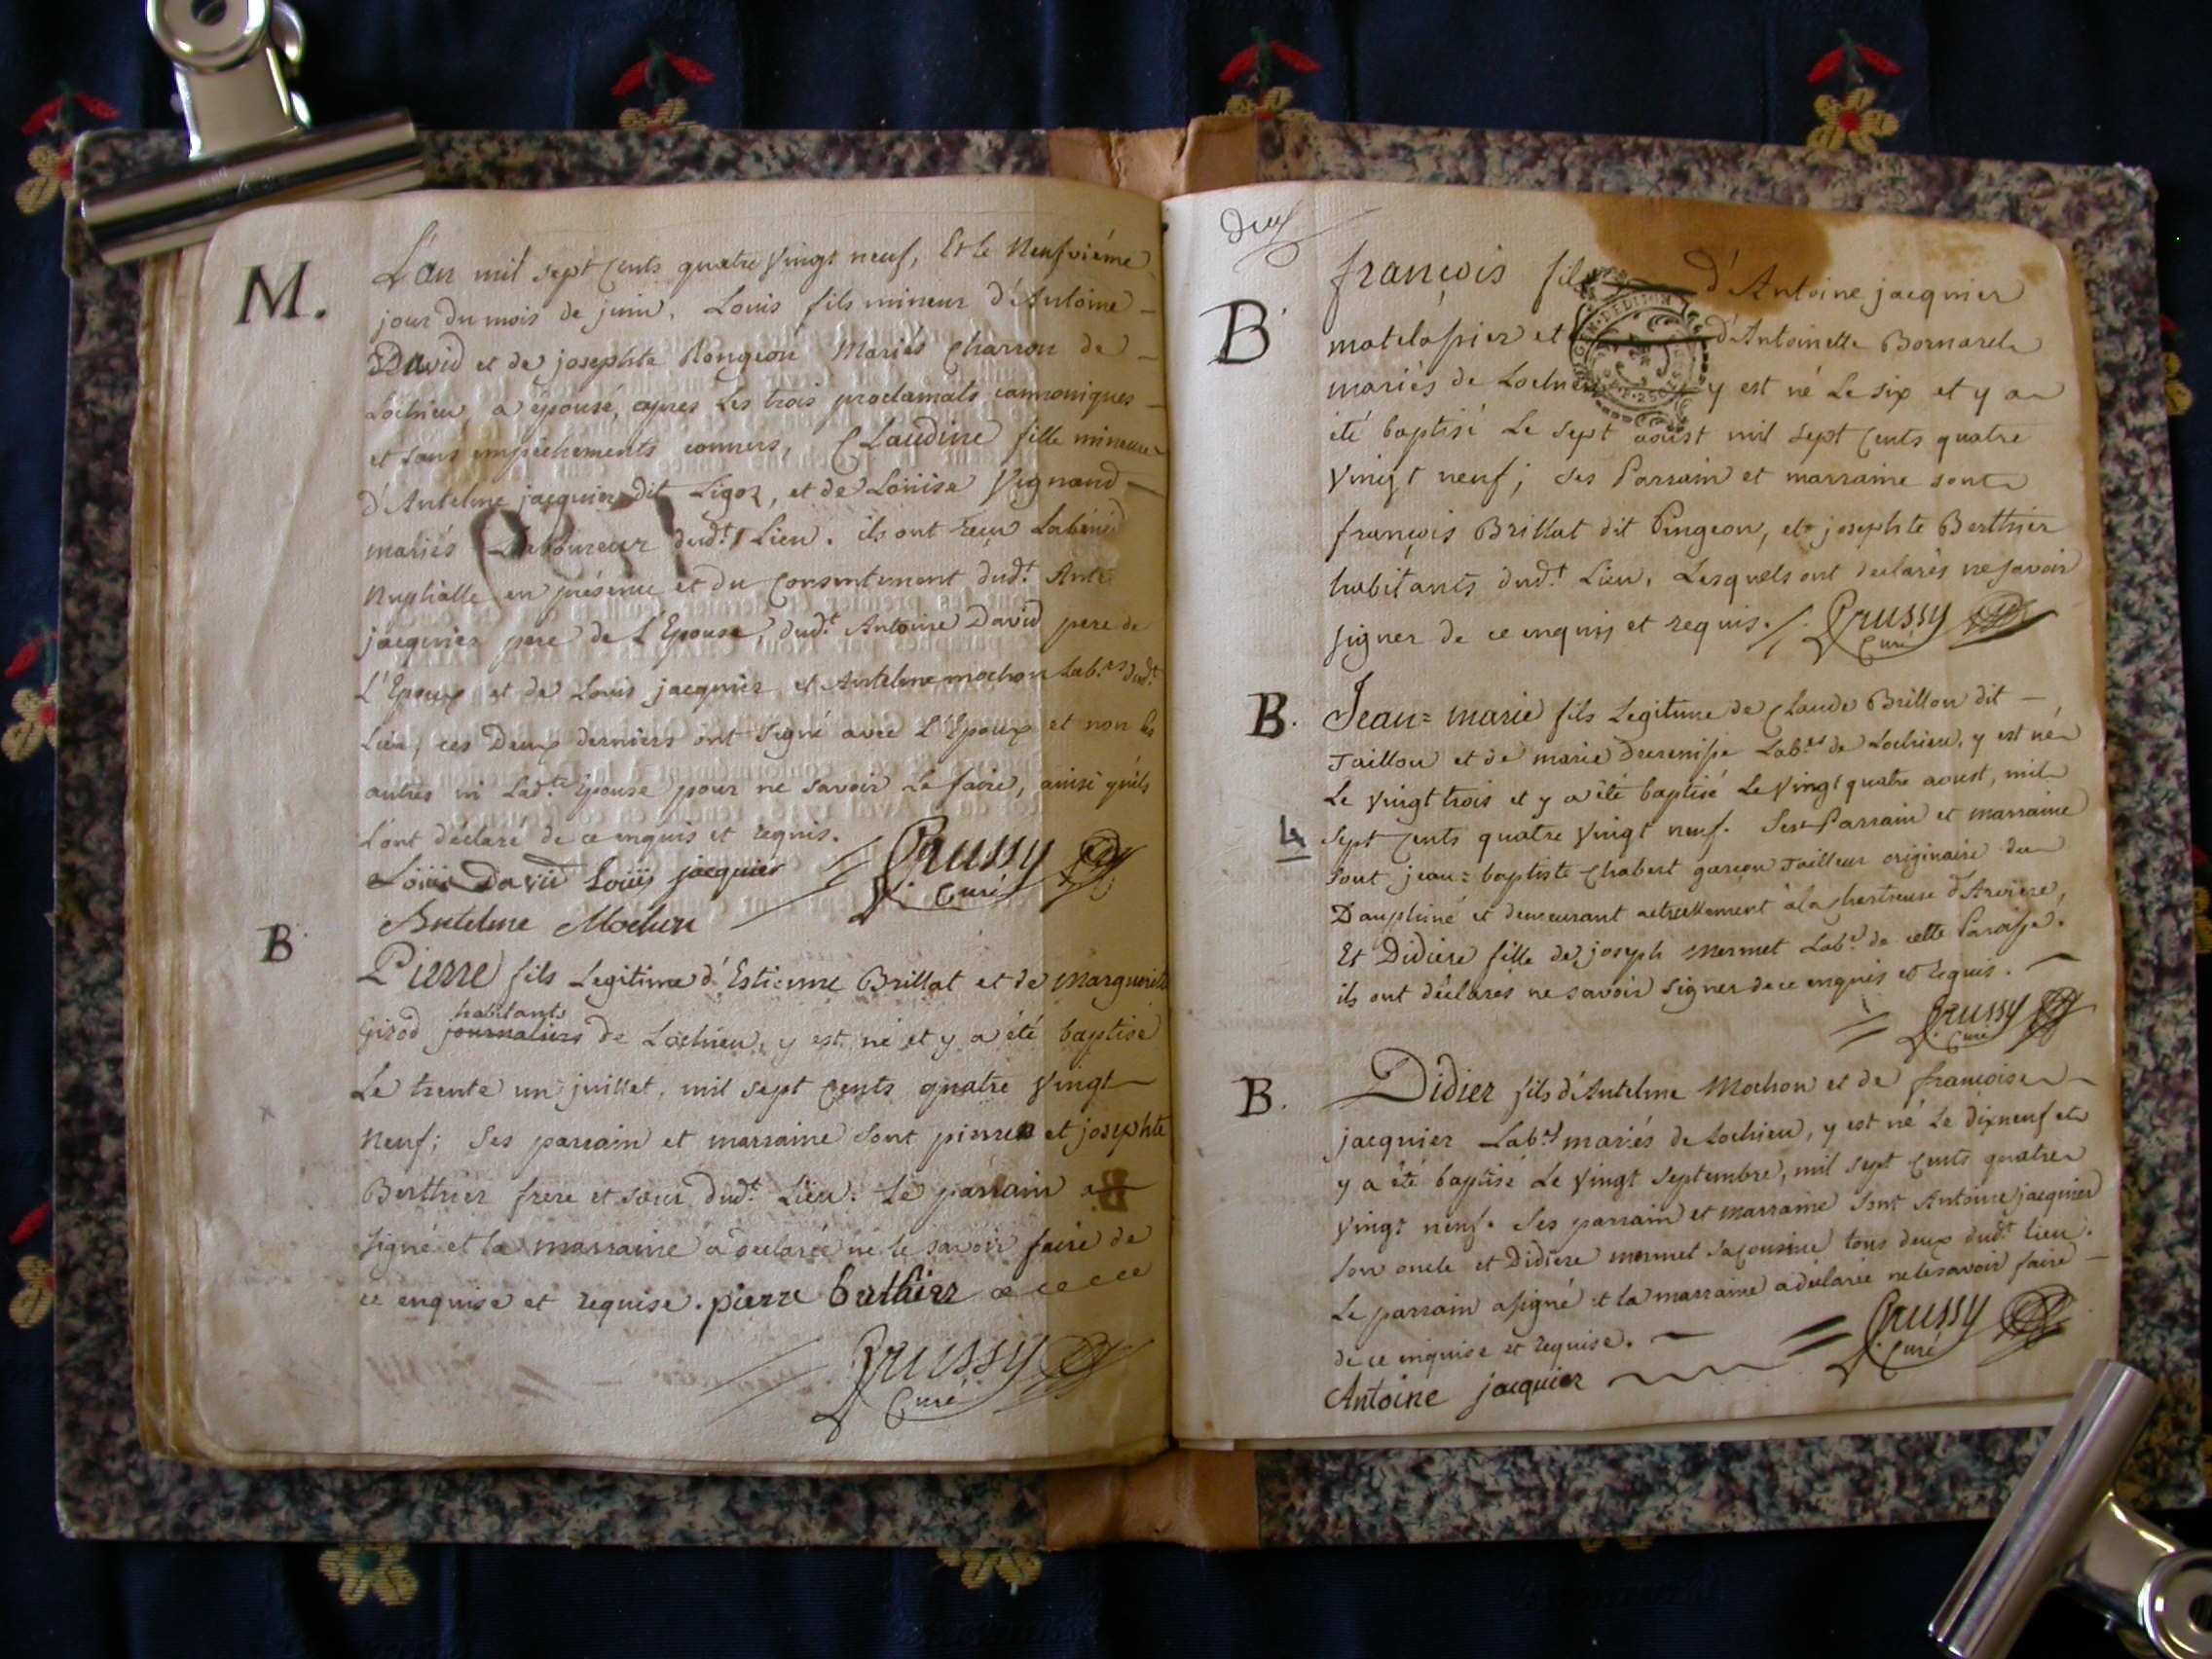 M.
L'an mil sept cents quatre vingt neuf, Et le Neufviéme
jour du mois de juin, Louis fils mineur d'Antoine
David et de josephte Rongeon Mariés Charron de
Lochieu a épousé, apres les trois proclamats cannoniques
et sans empêchements connus, Claudine fille mineure
d'Antelme jacquier dit Ligoz, et de Loüise Vignand
mariés Laboureur dud.t Lieu. ils ont reçu la béné.d
Nuptialle en présence et du Consentement dud.t Ante
jacquier pere de L'Epouse, dud.t Antoine David pere de
L'Epoux et de Louis jacquier et Antelme mochon Lab.rs dud.t
Lieu, ces Deux derniers ont signé avec L'Epoux et non les
autres ni Lad.te Epouse pour ne savoir Le faire, ainsi qu'ils
L'ont déclaré de ce enquis et requis.
Loüis David Loüis jacquier
Prussy
Curé
Antelme Mochon
B
Pierre fils Legitime d'Estienne Brillat et de Marguerite
habitants
Girod journaliers de Lochieu, y est né et y a été baptisé
Le trente un juillet, mil sept cents quatre vingt
Neuf; Ses parrain et marraine sont pierre et josephte
Berthier frere et sœur dud.t Lieu. Le parrain a
signé et la marraine a déclarée ne le savoir faire de
ce enquise et requise. pierre berthier
Prussy
Curé
B
françois fils d'Antoine jacquier
matelassier et d'Antoinette Bornarel
mariés de Lochieu y est né Le six et y a
été baptisé Le sept aoust mil sept cents quatre
vingt neuf; ses Parrain et marraine sont
françois Brillat dit Pingeon, et josephte Berthier
habitants dud.t Lieu, Lesquels ont declarés ne savoir
signer de ce enquis et requis. Prussy
Curé
B.
Jean=marie fils Legitime de Claude Brillon dit
Taillon et de marie Lab.rs de Lochieu, y est né
Le vingt trois et y a été baptisé Le vingt quatre aoust, mil
4
sept cents quatre vingt neuf. Ses Parrain et marraine
sont jean=baptiste Chabert garçon Tailleur originaire du
Dauphiné et demeurant actuellement à la chartreuse d'Arviere,
Et Didiere fille de joseph Mermet Lab.r de cette Paroisse.
ils ont déclarés ne savoir signer de ce enquis et requis.
Prussy
Curé
B.
Didier fils d'Antelme Mochon et de francoise
jacquier Lab.rs mariés de Lochieu, y est né Le dixneuf et
y a été baptisé Le vingt septembre, mil sept cents quatre
vingt neuf. Ses parrain et marraine sont Antoine jacquier
son oncle et Didiere mermet sa cousine tous deux dud.t lieu.
Le parrain a signé et la marraine a déclarée ne le savoir faire
de ce enquise et requise. Prussy
Curé
Antoine jacquier